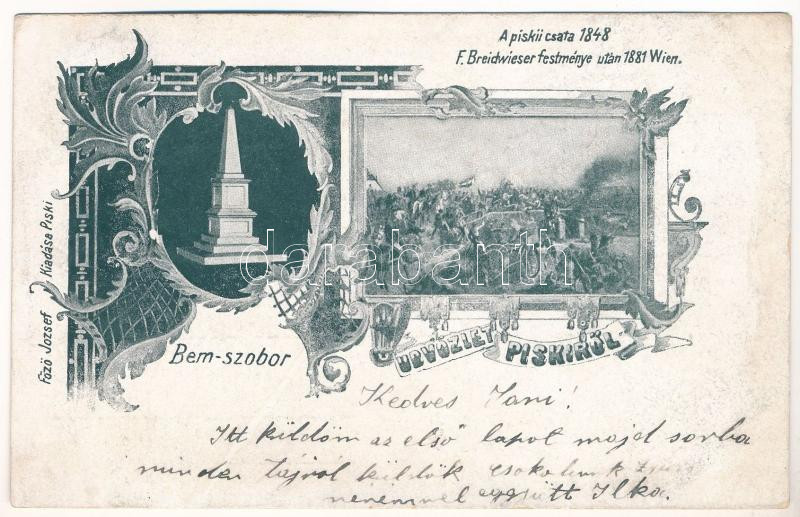 A piskii csata 1848
F. Breidwieser festménye után 1881 Wien.
Fözö Jozsef Kiadása Piski
darabanth
Bem-szobor
ÜDVÖZLET PISKIRŐL
Kedves Jani!
Itt küldöm az első lapot majd sorba
minden tájról küldök csokolunk
nevemmel együtt Ilka.